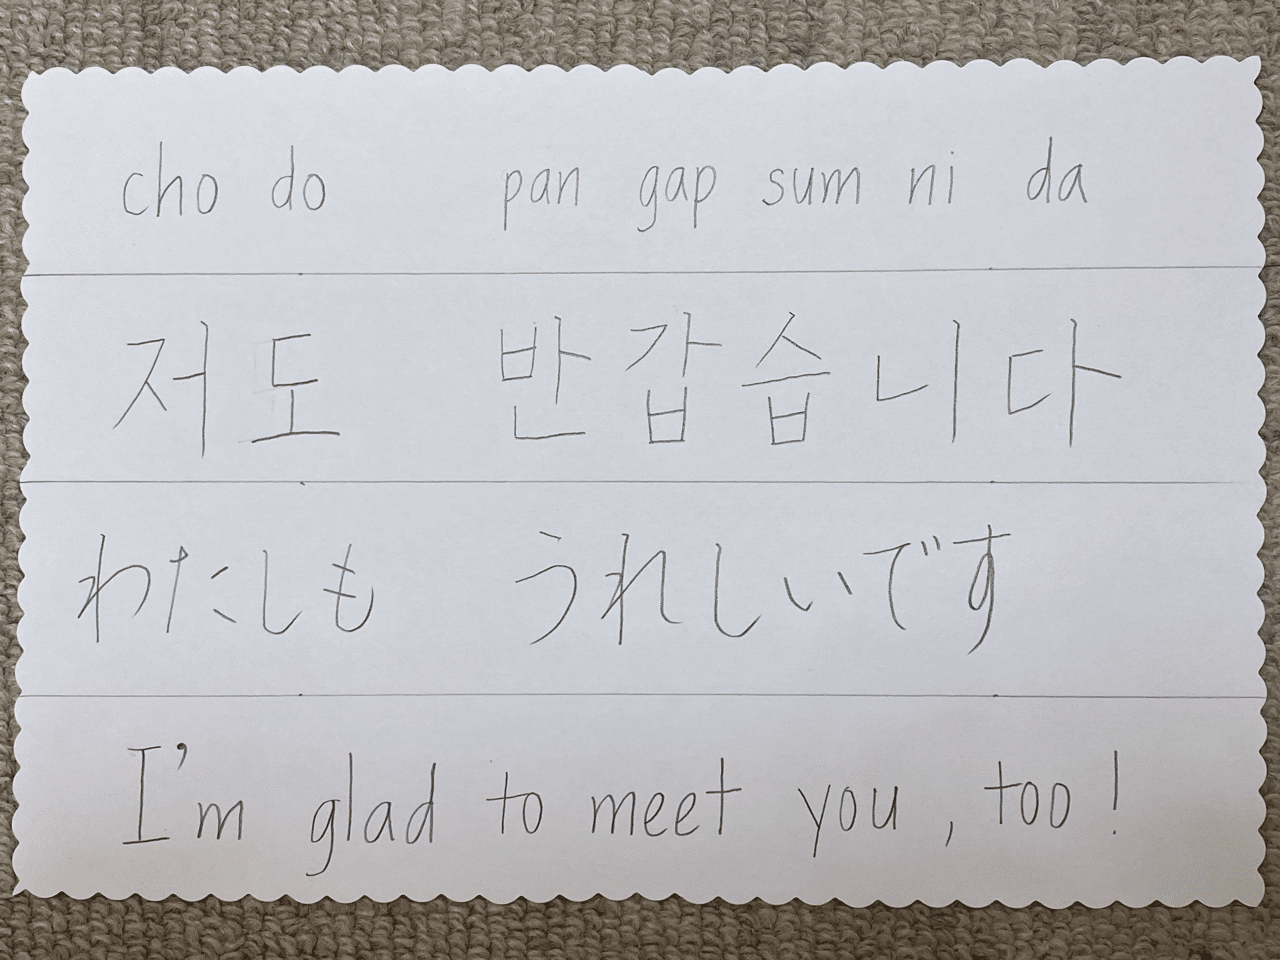 cho do pan gap sum ni da
저도 반갑습니다
わたしも うれしいです
I'm glad to meet you, too!